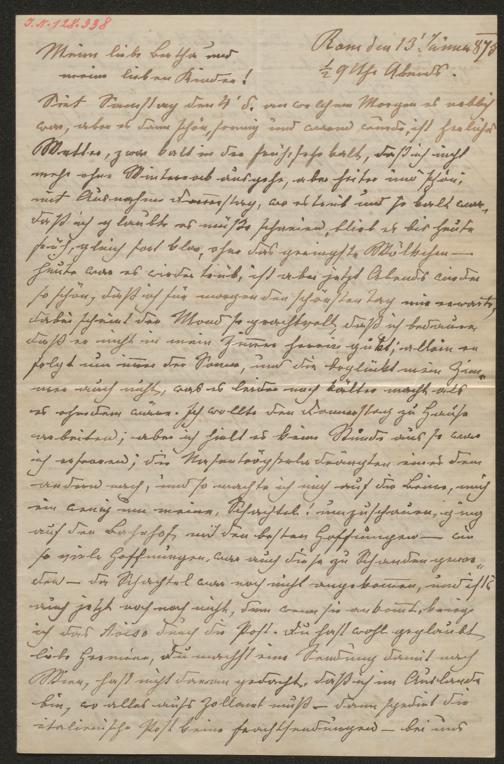 J.N. 128.338
Rom den 13' Jänner 878
½ 9 Uhr Abends.
Meine liebe Bertha und
meine lieben Kinder!
Seit Samstag den d. an welchem Morgen es neblig
war, aber es dann schön, sonnig und warm wurde, ist herrliches
Wetter, zwar kalt in der Früh, sehr kalt, daß ich nicht
mehr ohne Winterrock ausgehe, aber heiter und schön,
mit Ausnahme Donnerstag, wo es trüb und so kalt war,
daß ich glaubte es müßte schneien, blieb es bis heute
früh, gleich fort blau, ohne das geringste Wölkchen —
heute war es wieder trüb, ist aber jetzt Abends wieder
so schön, daß ich für morgen den schönsten Tag mir erwarte,
dabei scheint der Mond so prachtvoll, daß ich bedauere
daß er nicht in mein Zimmer herein guckt; allein er
folgt nun immer der Sonne, und die beglückt mein Zim-
mer auch nicht, was es leider noch kälter macht als
es ohnedem wäre. Ich wollte den Donnerstag zu Hause
arbeiten; aber ich hielt es keine Stunde aus so war
ich erfroren; die drängten eines dem
andern nach, und so machte ich mich auf die Beine, mich
ein wenig um meine Schachtel umzuschauen, ging
auf den Bahnhof mit den besten Hoffnungen — wie
so viele Hoffnungen, war auch diese zu Schanden gewor-
den — die Schachtel war noch nicht angekommen, und ist's
auch jetzt noch nicht, denn wenn sie ankommt, kriege
ich das Aviso durch die Post. Du hast wohl geglaubt
liebe Hermine, Du machst eine Sendung damit nach
Wien, hast nicht daran gedacht, daß ich im Auslande
bin, wo alles aufs Zollamt muß — dann spedirt die
italienische Post keine Frachtsendungen — bei uns